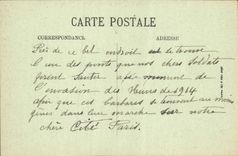 CARTE POSTALE
CORRESPONDANCE ADRESSE
Près de ce bel endroit se trouve
l'un des ponts que nos chers soldats
firent sauter au moment de
l'invasion des Huns de 1914
afin que ces barbares se trouvent au moins
gênés dans leur marche sur notre
chère Cité Paris.